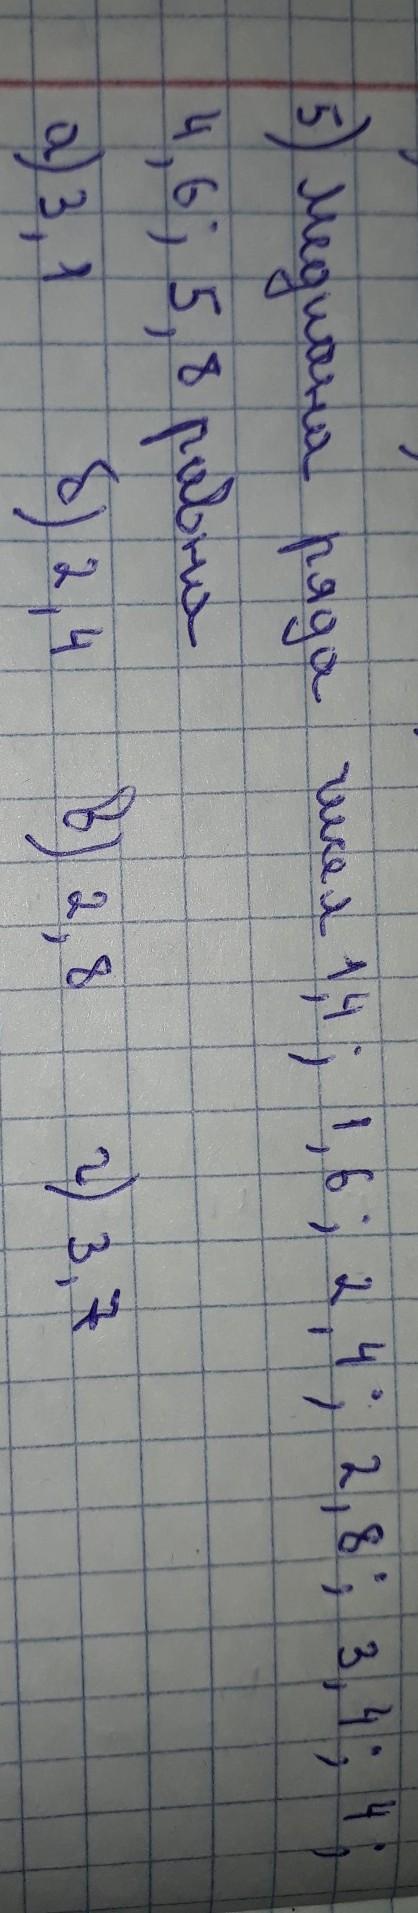 5) Медиана ряда чисел 1,4; 1,6; 2,4; 2,8; 3,4; 4;
4,6; 5,8 равна
а) 3,1 б) 2,4 в) 2,8 г) 3,7